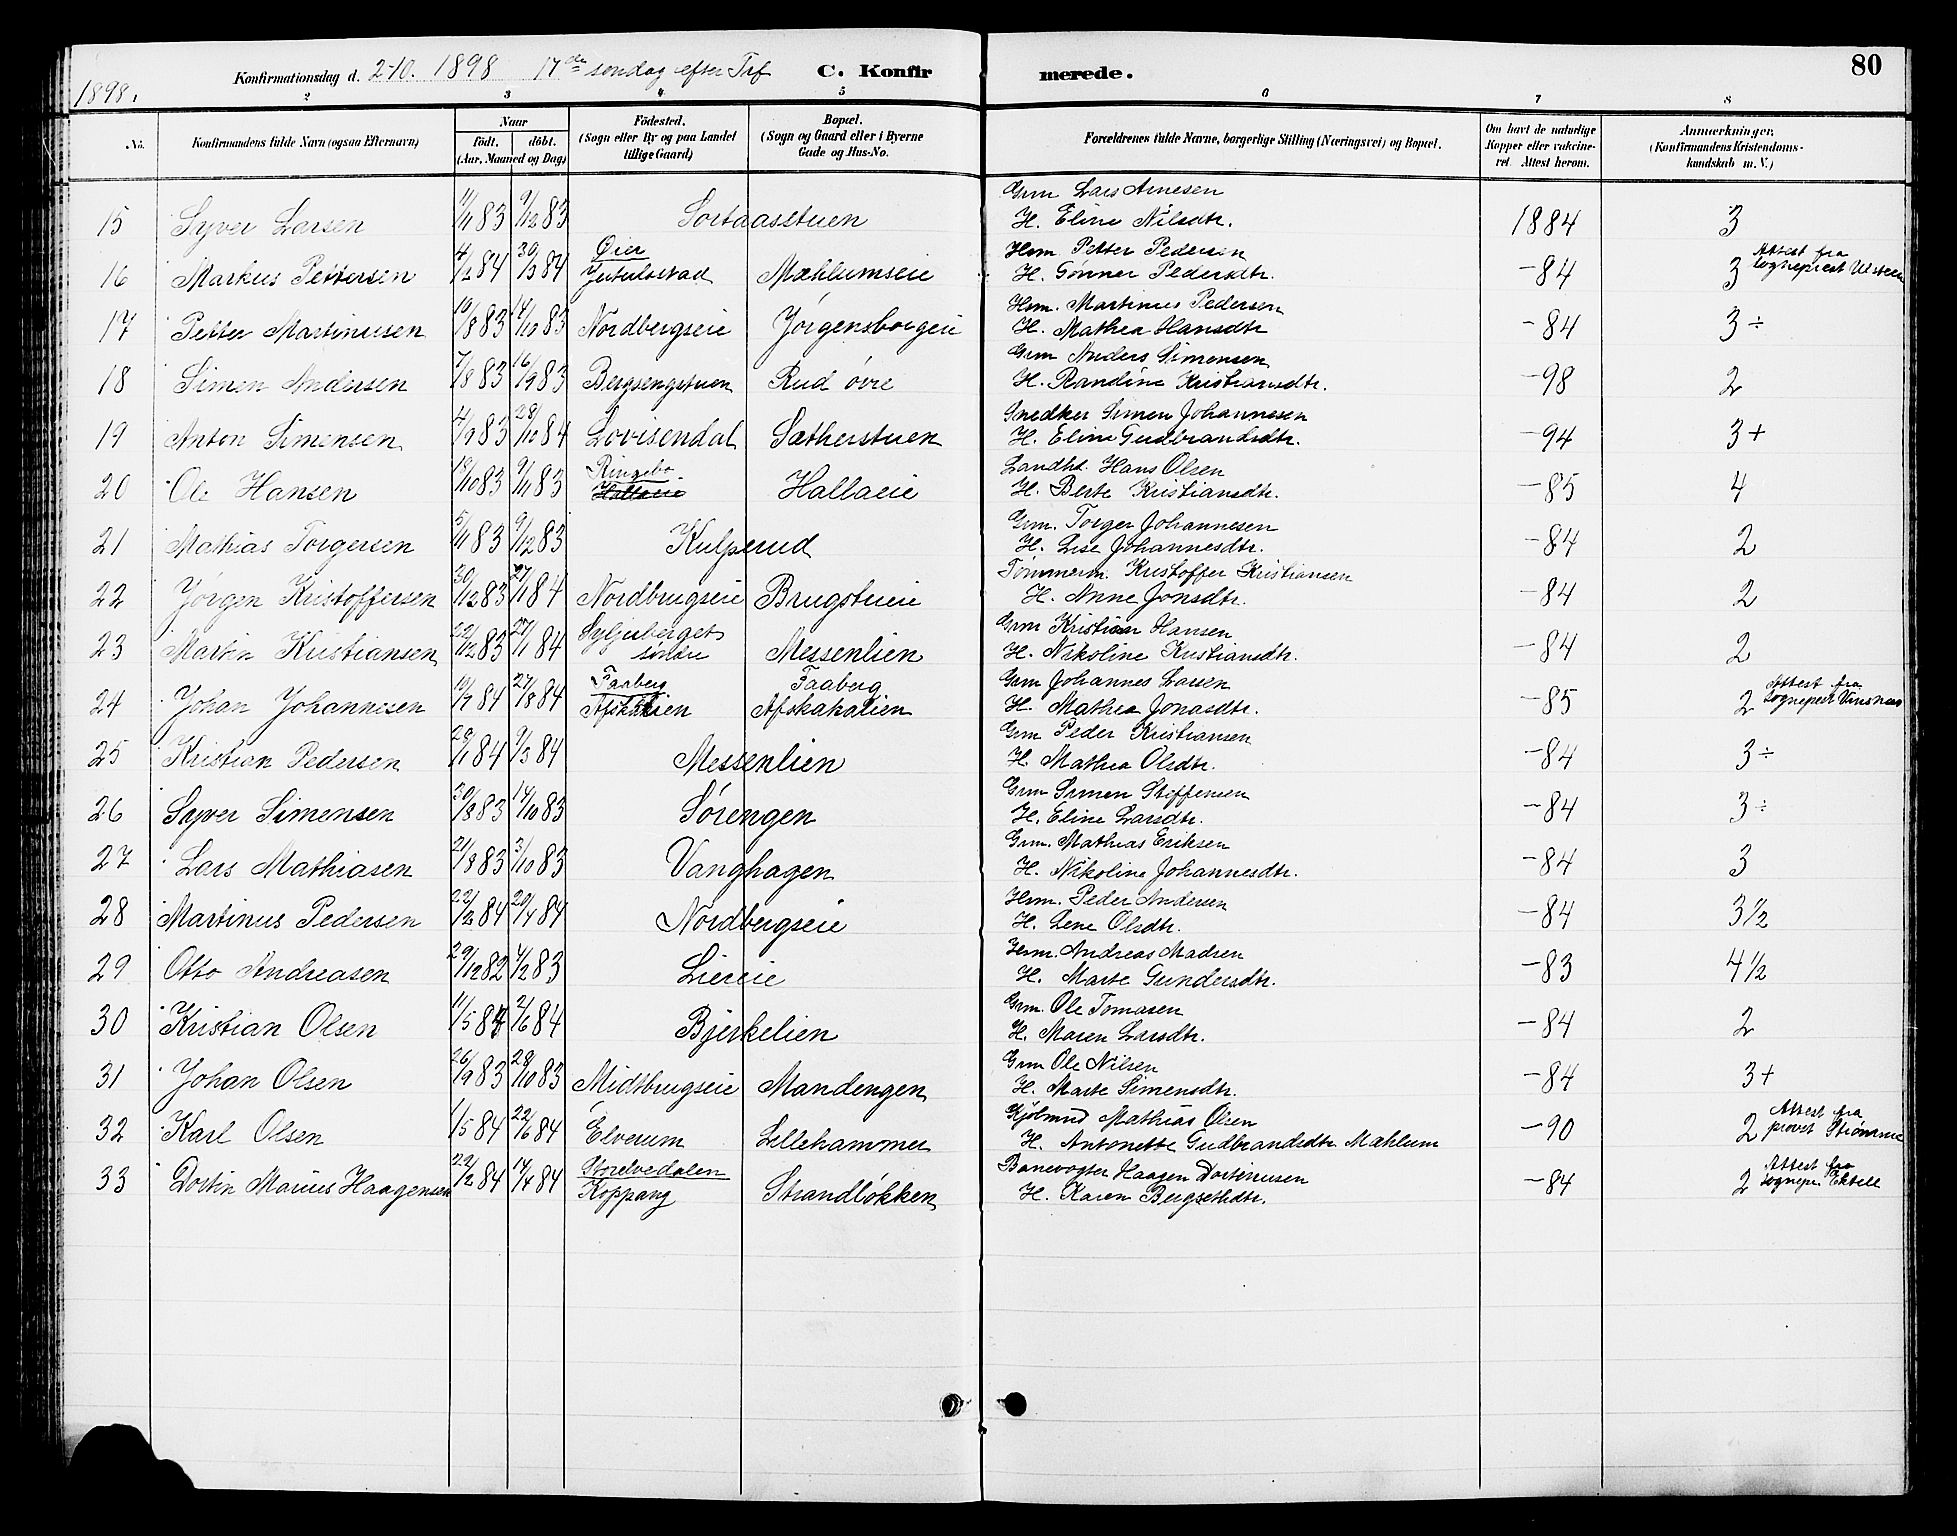 80
Konfirmationsdag d. 2-10. 1898 17de søndag efter Trf C. Konfirmerede.
1898.
2 3 4 5 6 7 8
No. Konfirmandens fulde Navn (ogsaa Efternavn) Naar födt. döbt. (Aar, Maaned og Dag) Födested. (Sogn eller By og paa Landet tillige Gaard) Bopæl. (Sogn og Gaard eller i Byerne Gade og Hus-No. Forældrenes fulde Navne, borgerlige Stilling (Næringsvei) og Bopæl. Om havt de naturlige Kopper eller vakcineret. Attest herom. Anmærkninger. (Konfirmandens Kristendomskundskab m. V.)
Grm Lars Arnesen
15 Syver Larsen 11/11 83 9/12 83 Sortaasstuen H. Eline Nilsdtr. 1884 3
Øier Hsm Petter Pedersen Attest fra
16 Markus Pettersen 4/2 84 30/3 84 Mæhlumseie H. Gønner Pedersdtr. -84 3 sogneprest
Hsm. Martinus Pedersen
17 Petter Martinusen 19/8 83 14/10 83 Nordbergseie Jørgensborgeie H. Mathea Hansdtr -84 3÷
Grm Anders Simensen
18 Simen Andersen 7/8 83 16/9 83 Bergsengstuen Rud øvre H. Randine Kristiansdtr. -98 2
Snedker Simen Johannesen
19 Anton Simensen 4/9 83 28/10 84 Lovisendal Sætherstuen H. Eline Gudbrandsdtr. -94 3+
Ringebo Landhd. Hans Olsen
20 Ole Hansen 18/10 83 9/11 83 Hallaeie Hallaeie H. Berte Kristiansdtr. -85 4
Grm. Torger Johannesen
21 Mathias Torgersen 5/11 83 9/12 83 Kulperud H. Lise Johannesdtr. -84 2
Tømmerm. Kristoffer Kristiansen
22 Jørgen Kristoffersen 30/12 83 27/1 84 Nordbrugseie Brugstueie H. Anne Jonsdtr. -84 2
Syljuberget Grm Kristian Hansen
23 Martin Kristiansen 22/12 83 27/1 84 søndre Messenlien H. Nikoline Kristiansdtr. -84 2
Faaberg Faaberg Grm Johannes Larsen Attest fra
24 Johan Johannesen 19/7 84 27/8 84 Afskakalien H. Mathea Jonasdtr. -85 2
Grm Peder Kristiansen
25 Kristian Pedersen 29/1 84 9/3 84 Messenlien H. Mathea Olsdtr. -84 3÷
Grm Simen Stiffensen
26 Syver Simensen 30/8 83 14/10 83 Sørengen H. Eline Larsdtr. -84 3÷
Grm. Mathias Eriksen
27 Lars Mathiasen 21/8 83 3/10 83 Vanghagen H. Nikoline Johannesdtr. -84 3
Hsm. Peder Andersen
28 Martinus Pedersen 22/2 84 20/4 84 Nordbergseie H. Lene Olsdtr. -84 3½
Hsm. Andreas Madsen
29 Otto Andreasen 29/12 82 4/2 83 Liereie H. Marte Gundersdtr. -83 4½
Grm. Ole Tomasen
30 Kristian Olsen 11/5 84 2/6 84 Bjerkelien H. Maren Larsdtr. -84 2
Grm Ole Nilsen
31 Johan Olsen 26/9 83 28/10 83 Midtbrugseie Mandengen H. Marte Simensdtr. -84 3+
Kjøbmd Mathias Olsen Attest fra
32 Karl Olsen 1/5 84 22/6 84 Elverum Lillehammer H. Antonette Gudbrandsdtr Mæhlum -90 2 provst Strømme
Storelvedalen Banevogter Haagen Dortinusen Attest fra
33 Dortin Marius Haagensen 29/2 84 14/4 84 Koppang Strandløkken H. Karen Bergsethdtr. -84 2 sognepr.